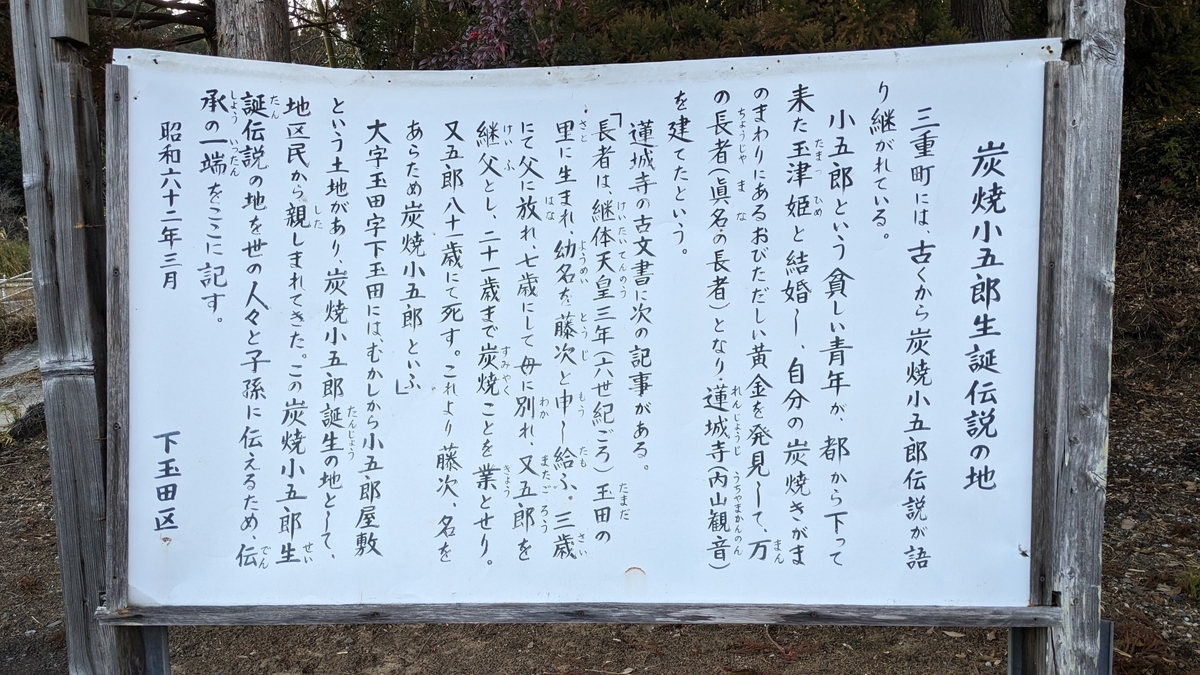 炭焼小五郎生誕伝説の地
三重町には、古くから炭焼小五郎伝説が語
り継がれている。
小五郎という貧しい青年が、都から下って
来た玉津姫と結婚し、自分の炭焼きがま
のまわりにあるおびただしい黄金を発見して、万
の長者(眞名の長者)となり、蓮城寺(内山観音)
を建てたという。
蓮城寺の古文書に次の記事がある。
「長者は、継体天皇三年(六世紀ごろ)玉田の
里に生まれ、幼名を藤次と申し給ふ。三歳
にて父に放れ、七歳にして母に別れ、又五郎を
継父とし、二十一歳まで炭焼ことを業とせり。
又五郎八十一歳にて死す。これより藤次、名を
あらため炭焼小五郎といふ」
大字玉田字下玉田には、むかしから小五郎屋敷
という土地があり、炭焼小五郎誕生の地として、
地区民から親しまれてきた。この炭焼小五郎生
誕伝説の地を世の人々と子孫に伝えるため、伝
承の一端をここに記す。
昭和六十二年三月
下玉田区